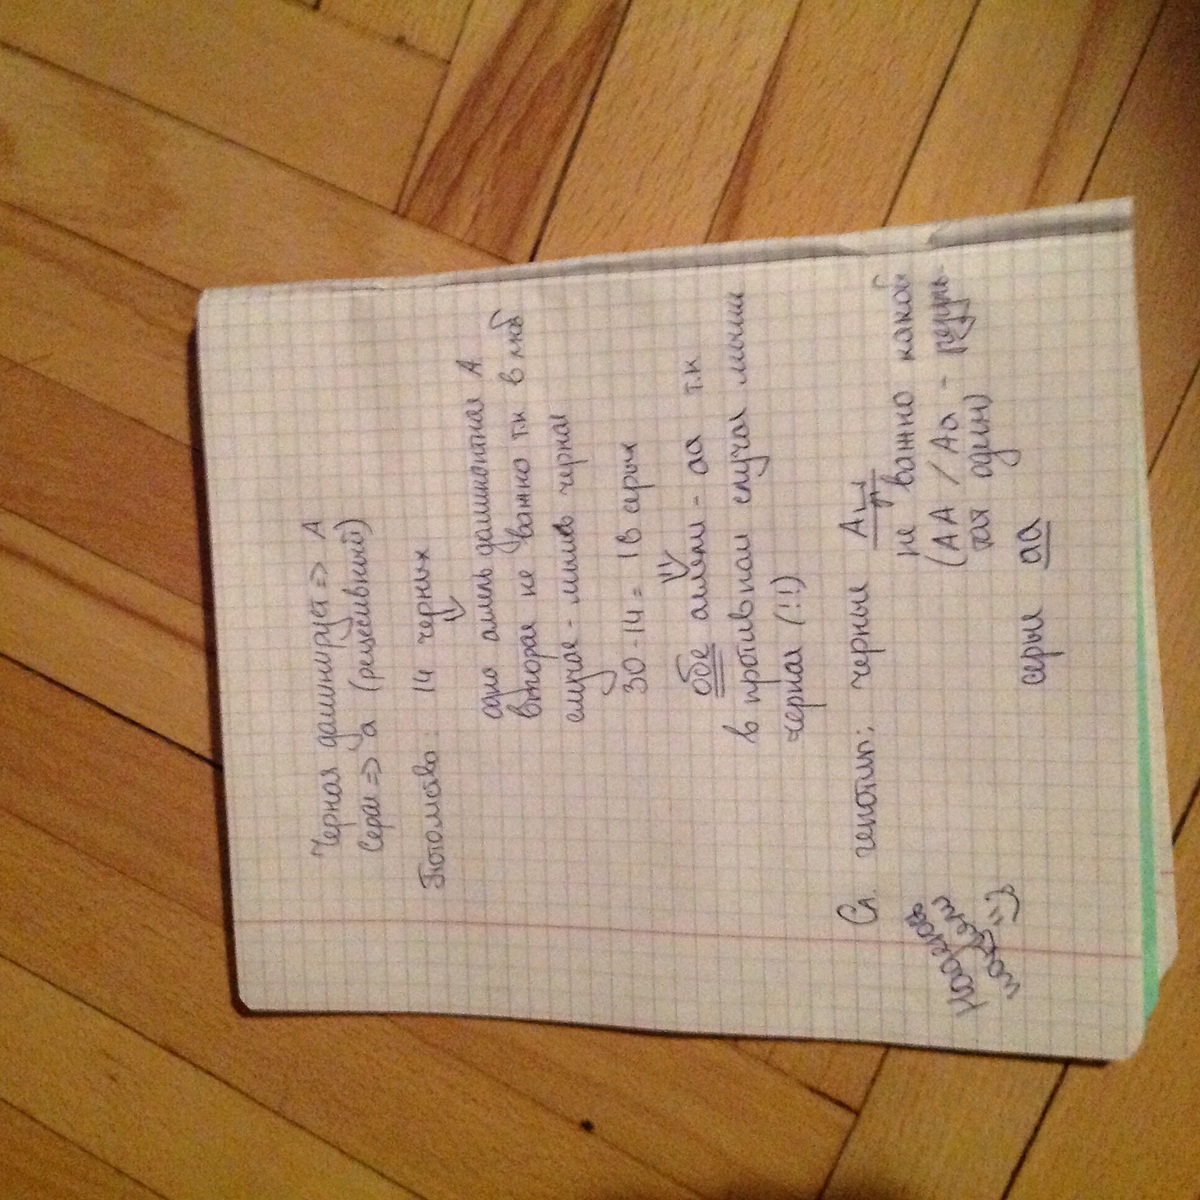 Черная доминирует => А
Серая => а (рецессивный)
Потомство: 14 черных
одна аллель доминантная А
вторая не важно т.к в люб
случае - мышь черная
30-14 = 16 серых
обе аллели - аа т.к
в противном случае мыши
черная (!!)
Сл. генотип: черные А
не важно какой
(АА / Аа - результ-
тая один)
серые аа
надеюсь